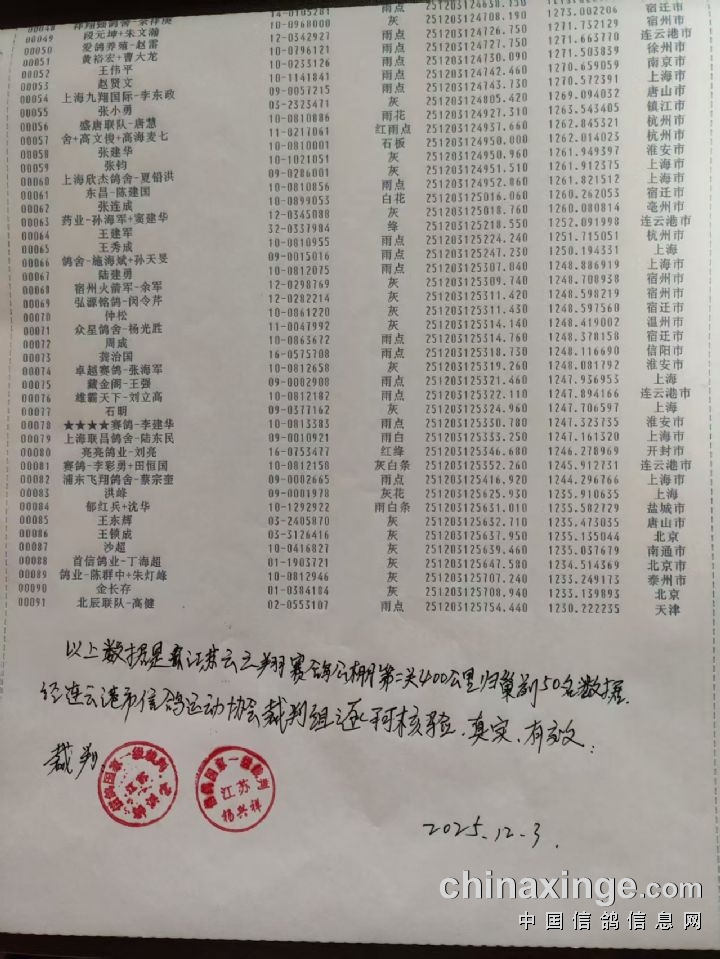 00048 祥翔强鸽舍-余祥庚 14-0105281 雨点 251203124638.750
00049 段元坤+朱文瀚 10-0968000 灰 251203124708.190 1273.002206 宿迁市
00050 爱鸽养殖-赵雷 12-0342927 雨点 251203124726.750 1271.732129 宿州市
00051 黄裕宏+曹大龙 10-0796121 雨点 251203124727.750 1271.663770 连云港市
00052 王伟平 10-0233126 雨点 251203124730.090 1271.503839 徐州市
00053 赵贤文 10-1141841 雨点 251203124742.460 1270.659059 南京市
00054 上海九翔国际-李东政 09-0057215 雨点 251203124743.730 1270.572391 上海市
00055 张小勇 03-2323471 灰 251203124805.420 1269.094032 唐山市
00056 盛唐联队-唐慧 10-0810886 雨花 251203124927.310 1263.543405 镇江市
00057 舍+高文俊+高海麦七 11-0217061 红雨点 251203124937.660 1262.845321 杭州市
00058 张建华 10-0810001 石板 251203124950.000 1262.014023 杭州市
00059 张钧 10-1021051 灰 251203124950.960 1261.949397 淮安市
00060 上海欣杰鸽舍-夏铝洪 09-0286001 灰 251203124951.510 1261.912375 上海市
00061 东昌-陈建国 10-0810856 雨点 251203124952.860 1261.821512 上海市
00062 张连成 10-0899053 白花 251203125016.060 1260.262053 宿迁市
00063 药业-孙海军+窦建华 12-0345088 灰 251203125018.760 1260.080814 亳州市
00064 王建军 32-0337904 绛 251203125218.550 1252.091998 连云港市
00065 王秀成 10-0810955 雨点 251203125224.240 1251.715051 杭州市
00066 鸽舍-施海斌+孙天旻 09-0015016 雨点 251203125247.230 1250.194331 上海
00067 陆建勇 10-0812075 雨点 251203125307.040 1248.886919 上海市
00068 宿州火箭军-余军 12-0298769 灰 251203125309.740 1248.708938 宿州市
00069 弘源铭鸽-闵令芹 12-0282214 灰 251203125311.420 1248.598219 宿州市
00070 仲松 10-0861220 灰 251203125311.430 1248.597560 宿迁市
00071 众星鸽舍-杨光胜 11-0047992 灰 251203125314.140 1248.419002 温州市
00072 周成 10-0863672 雨点 251203125314.760 1248.378158 宿迁市
00073 龚治国 16-0575708 雨点 251203125318.730 1248.116690 信阳市
00074 卓越赛鸽-张海军 10-0812658 灰 251203125319.260 1248.081792 淮安市
00075 藏金阁-王强 09-0002908 雨点 251203125321.460 1247.936953 上海
00076 雄霸天下-刘立高 10-0812182 雨点 251203125322.110 1247.894166 连云港市
00077 石明 09-0377162 灰 251203125324.960 1247.706597 上海
00078 ★★★★赛鸽-李建华 10-0813383 雨点 251203125330.780 1247.323735 淮安市
00079 上海联昌鸽舍-陆东民 09-0010921 雨白 251203125333.250 1247.161320 上海市
00080 亮亮鸽业-刘亮 16-0753477 红绛 251203125346.680 1246.278969 开封市
00081 赛鸽-李彩勇+田恒国 10-0812158 灰白条 251203125352.260 1245.912731 连云港市
00082 浦东飞翔鸽舍-蔡宗奎 09-0002665 雨点 251203125416.920 1244.296766 上海市
00083 洪峰 09-0001978 灰花 251203125625.930 1235.910635 上海
00084 郁红兵+沈华 10-1292922 雨白条 251203125631.010 1235.582729 盐城市
00085 王东辉 03-2405870 灰 251203125632.710 1235.473035 唐山市
00086 王锁成 03-3126416 灰 251203125637.950 1235.135044 北京
00087 沙超 10-0416827 灰 251203125639.460 1235.037679 南通市
00088 首信鸽业-丁海超 01-1903721 灰 251203125647.580 1234.514369 北京市
00089 鸽业-陈群中+朱灯峰 10-0812946 灰 251203125707.240 1233.249173 泰州市
00090 金长存 01-0384184 灰 251203125708.940 1233.139893 北京
00091 北辰联队-高健 02-0553107 雨点 251203125754.440 1230.222235 天津
以上数据是江苏云之翔赛鸽公棚第二关400公里归巢前50名数据.
经连云港市信鸽运动协会裁判组逐羽核验.真实.有效.
裁判
信鸽国家一级裁判
江苏
信鸽国家一级裁判
江苏
杨兴祥
2025.12.3.
chinaxinge.com
中国信鸽信息网